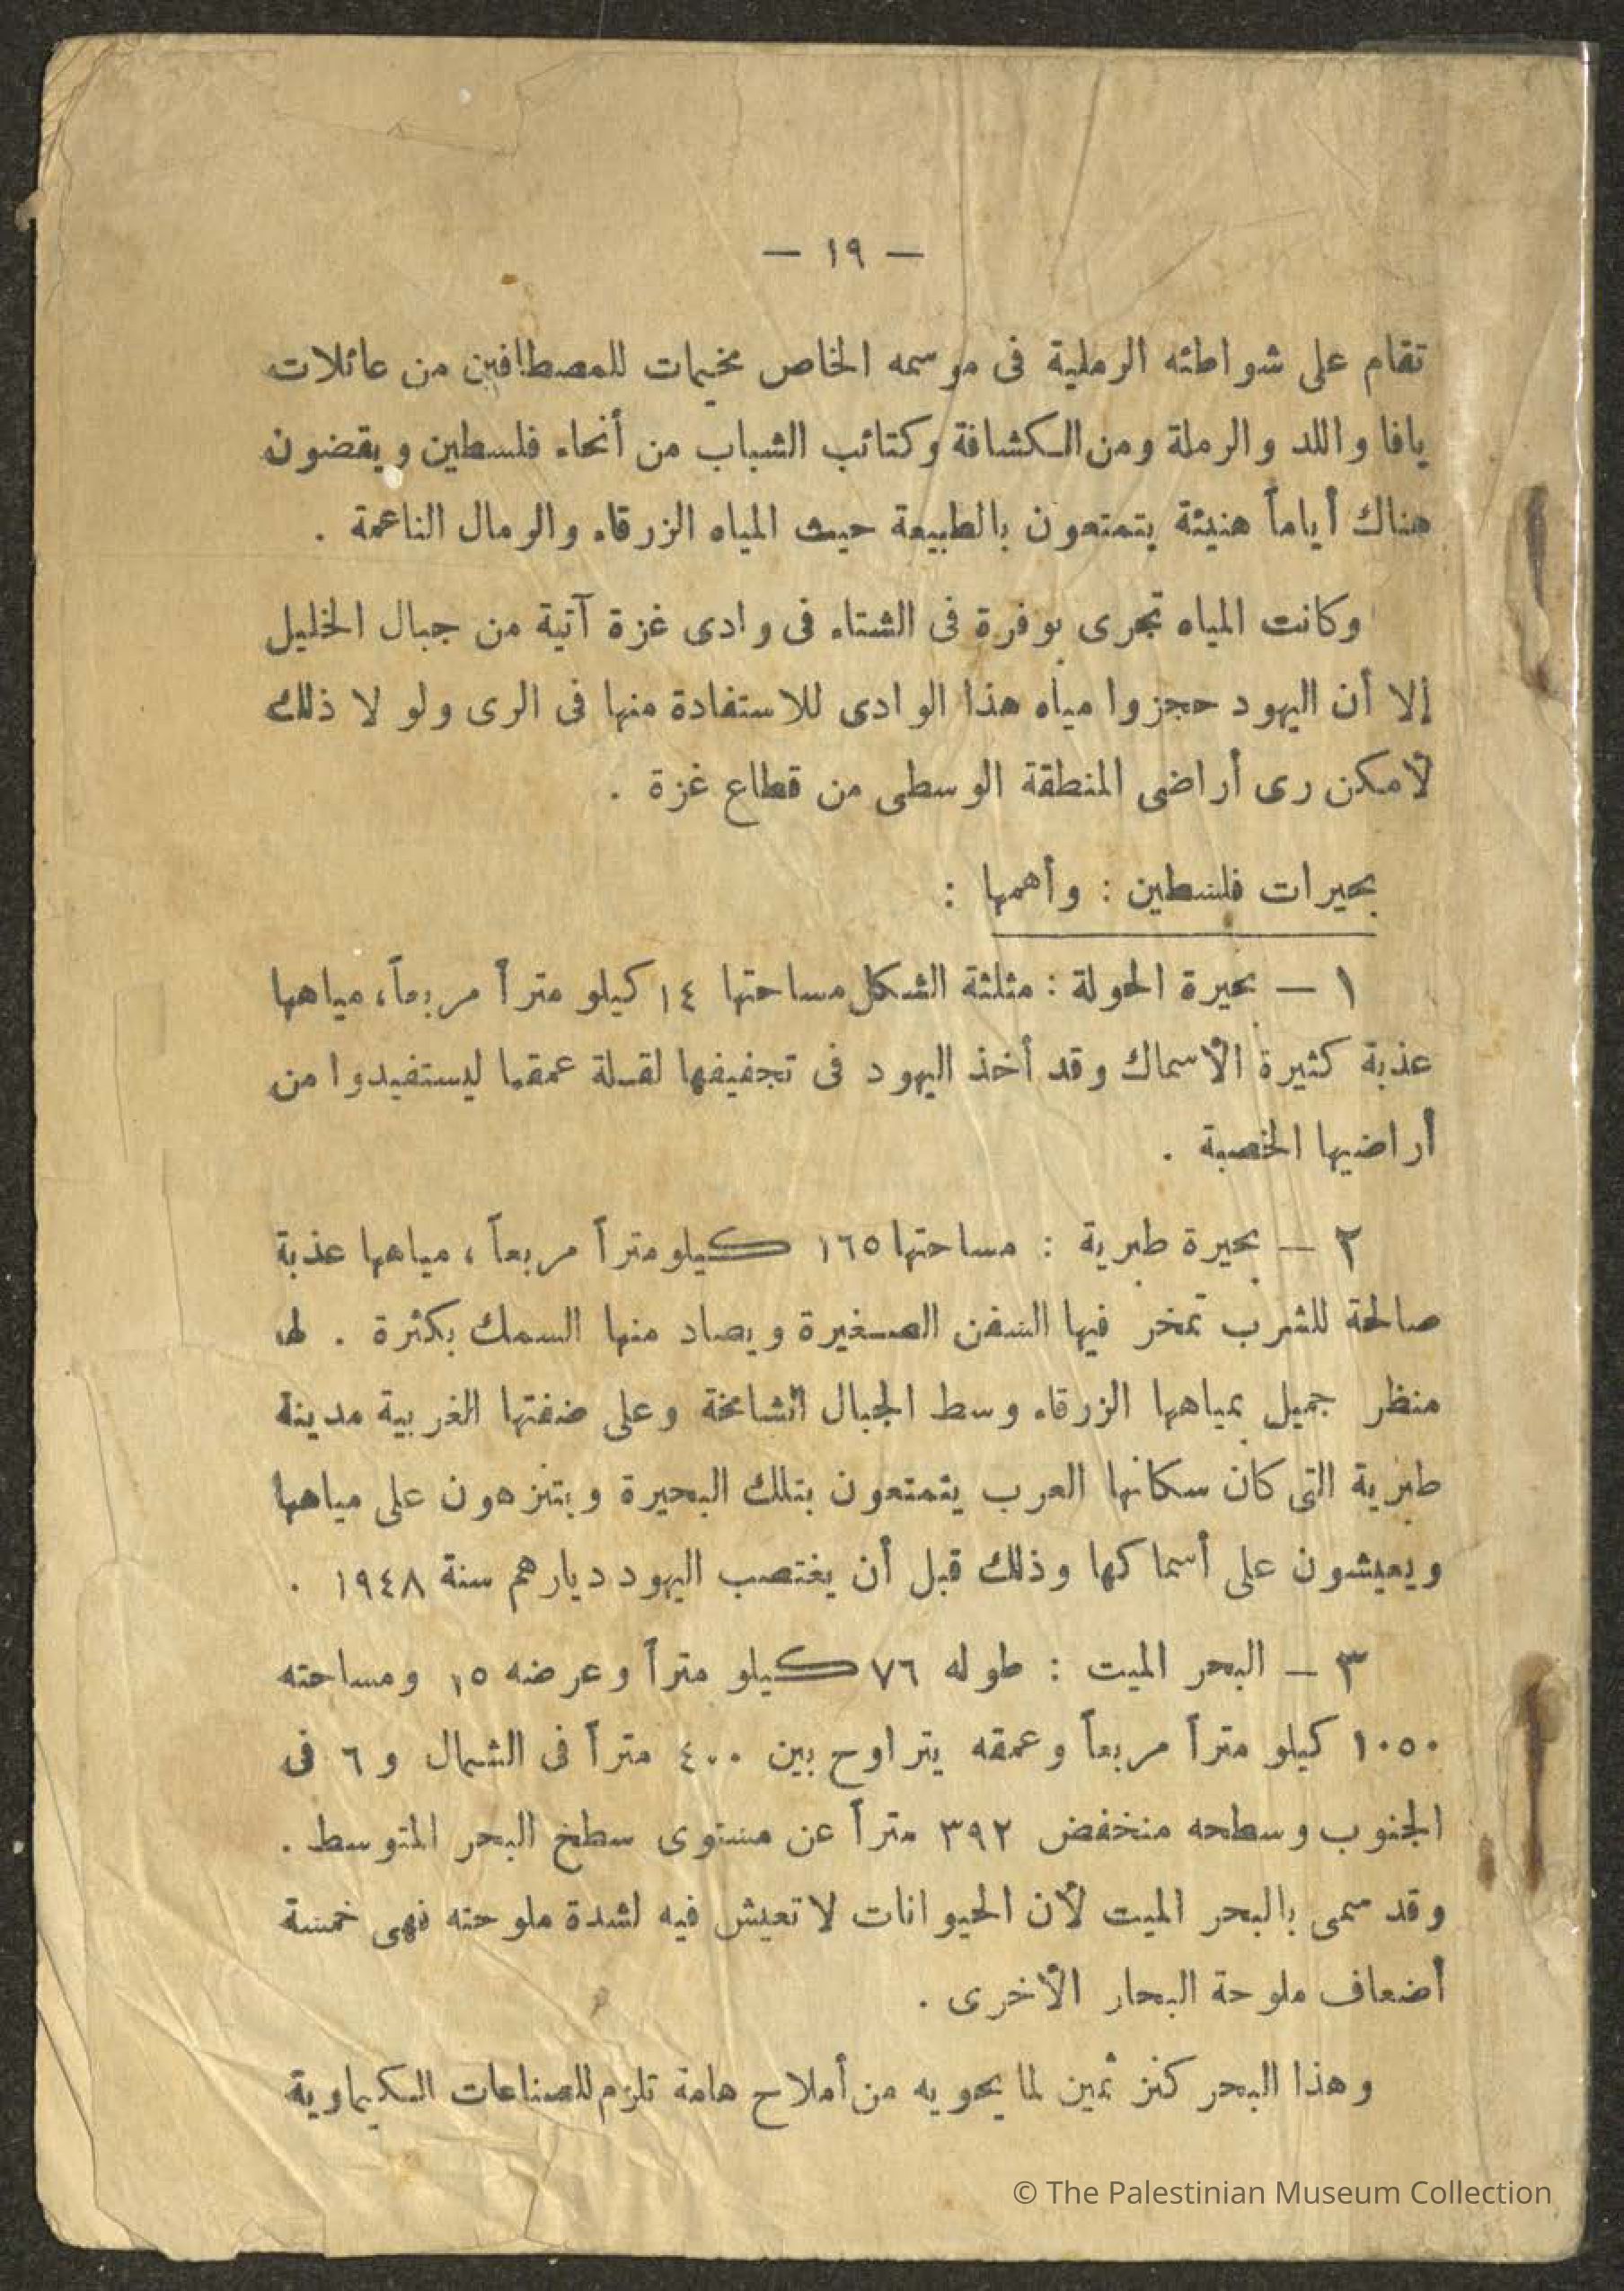 — ١٩ —
تقام على شواطئه الرملية فى موسمه الخاص مخيمات للمصطافين من عائلات
يافا واللد والرملة ومن الكشافة وكتائب الشباب من أنحاء فلسطين ويقضون
هناك أياماً هنيئة يتمتعون بالطبيعة حيث المياه الزرقاء والرمال الناعمة .
وكانت المياه تجرى بوفرة فى الشتاء فى وادى غزة آتية من جبال الخليل
إلا أن اليهود حجزوا مياه هذا الوادى للاستفادة منها فى الرى ولو لا ذلك
لأمكن رى أراضى المنطقة الوسطى من قطاع غزة .
بحيرات فلسطين : وأهمها :
١ — بحيرة الحولة : مثلثة الشكل مساحتها ١٤ كيلو متراً مربعاً، مياهها
عذبة كثيرة الأسماك وقد أخذ اليهود فى تجفيفها لقلة عمقها ليستفيدوا من
أراضيها الخصبة .
٢ — بحيرة طبرية : مساحتها ١٦٥ كيلو متراً مربعاً ، مياهها عذبة
صالحة للشرب تمخر فيها السفن الصغيرة ويصاد منها السمك بكثرة . لها
منظر جميل بمياهها الزرقاء وسط الجبال الشامخة وعلى ضفتها الغربية مدينة
طبرية التى كان سكانها العرب يتمتعون بتلك البحيرة ويتنزهون على مياهها
ويعيشون على أسماكها وذلك قبل أن يغتصب اليهود ديارهم سنة ١٩٤٨ .
٣ — البحر الميت : طوله ٧٦ كيلو متراً وعرضه ١٥ ومساحته
١٠٥٠ كيلو متراً مربعاً وعمقه يتراوح بين ٤٠٠ متراً فى الشمال و ٦ فى
الجنوب وسطحه منخفض ٣٩٢ متراً عن مستوى سطخ البحر المتوسط .
وقد سمى بالبحر الميت لأن الحيوانات لا تعيش فيه لشدة ملوحته فهى خمسة
أضعاف ملوحة البحار الأخرى .
وهذا البحر كنز ثمين لما يحويه من أملاح هامة تلزم للصناعات الكيماوية
© The Palestinian Museum Collection